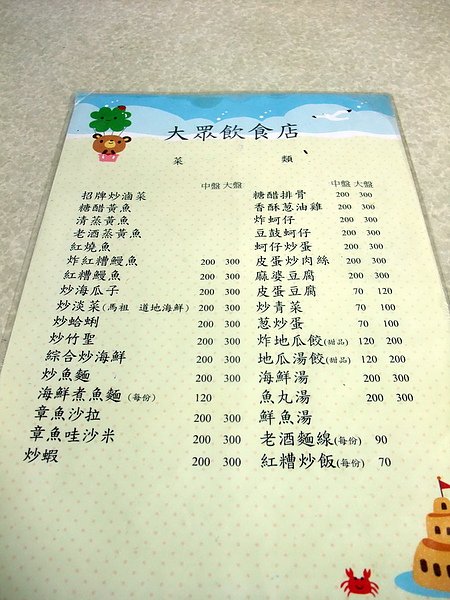 大眾飲食店
菜 類
中盤 大盤
招牌炒滷菜
糖醋黃魚
清蒸黃魚
老酒蒸黃魚
紅燒魚
炸紅糟鰻魚 200 300
紅糟鰻魚 200 300
炒海瓜子 200 300
炒淡菜(馬祖 道地海鮮) 200 300
炒蛤蜊 200 300
炒竹聖 200 300
綜合炒海鮮 200 300
炒魚麵 200 300
海鮮煮魚麵 (每份) 120
章魚沙拉 200 300
章魚哇沙米 200 300
炒蝦 200 300
中盤 大盤
糖醋排骨 200 300
香酥蔥油雞 200 300
炸蚵仔 200 300
豆鼓蚵仔 200 300
蚵仔炒蛋 200 300
皮蛋炒肉絲 200 300
麻婆豆腐 200 300
皮蛋豆腐 70 120
炒青菜 70 100
蔥炒蛋 70 100
炸地瓜餃(甜品) 120 200
地瓜湯餃(甜品) 120 200
海鮮湯 200 300
魚丸湯 200 300
鮮魚湯
老酒麵線(每份) 90
紅糟炒飯(每份) 70